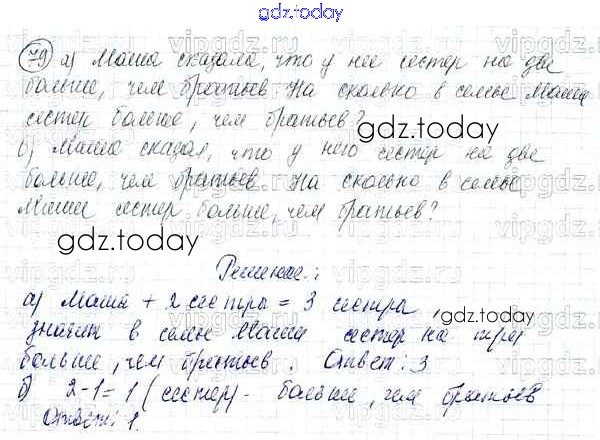 gdz.today
79 а) Маша сказала, что у нее сестер на две
больше, чем братьев На сколько в семье Маши
сестер больше, чем братьев?
gdz.today
б) Маша сказал, что у него сестер на две
больше, чем братьев На сколько в семье
Маши сестер больше, чем братьев?
gdz.today
Решение:
а) Маша + 2 сестры = 3 сестры
gdz.today
значит в семье Маши сестер на три
больше, чем братьев. Ответ: 3
б) 2-1=1 (сестер) - больше, чем братьев
Ответ: 1.